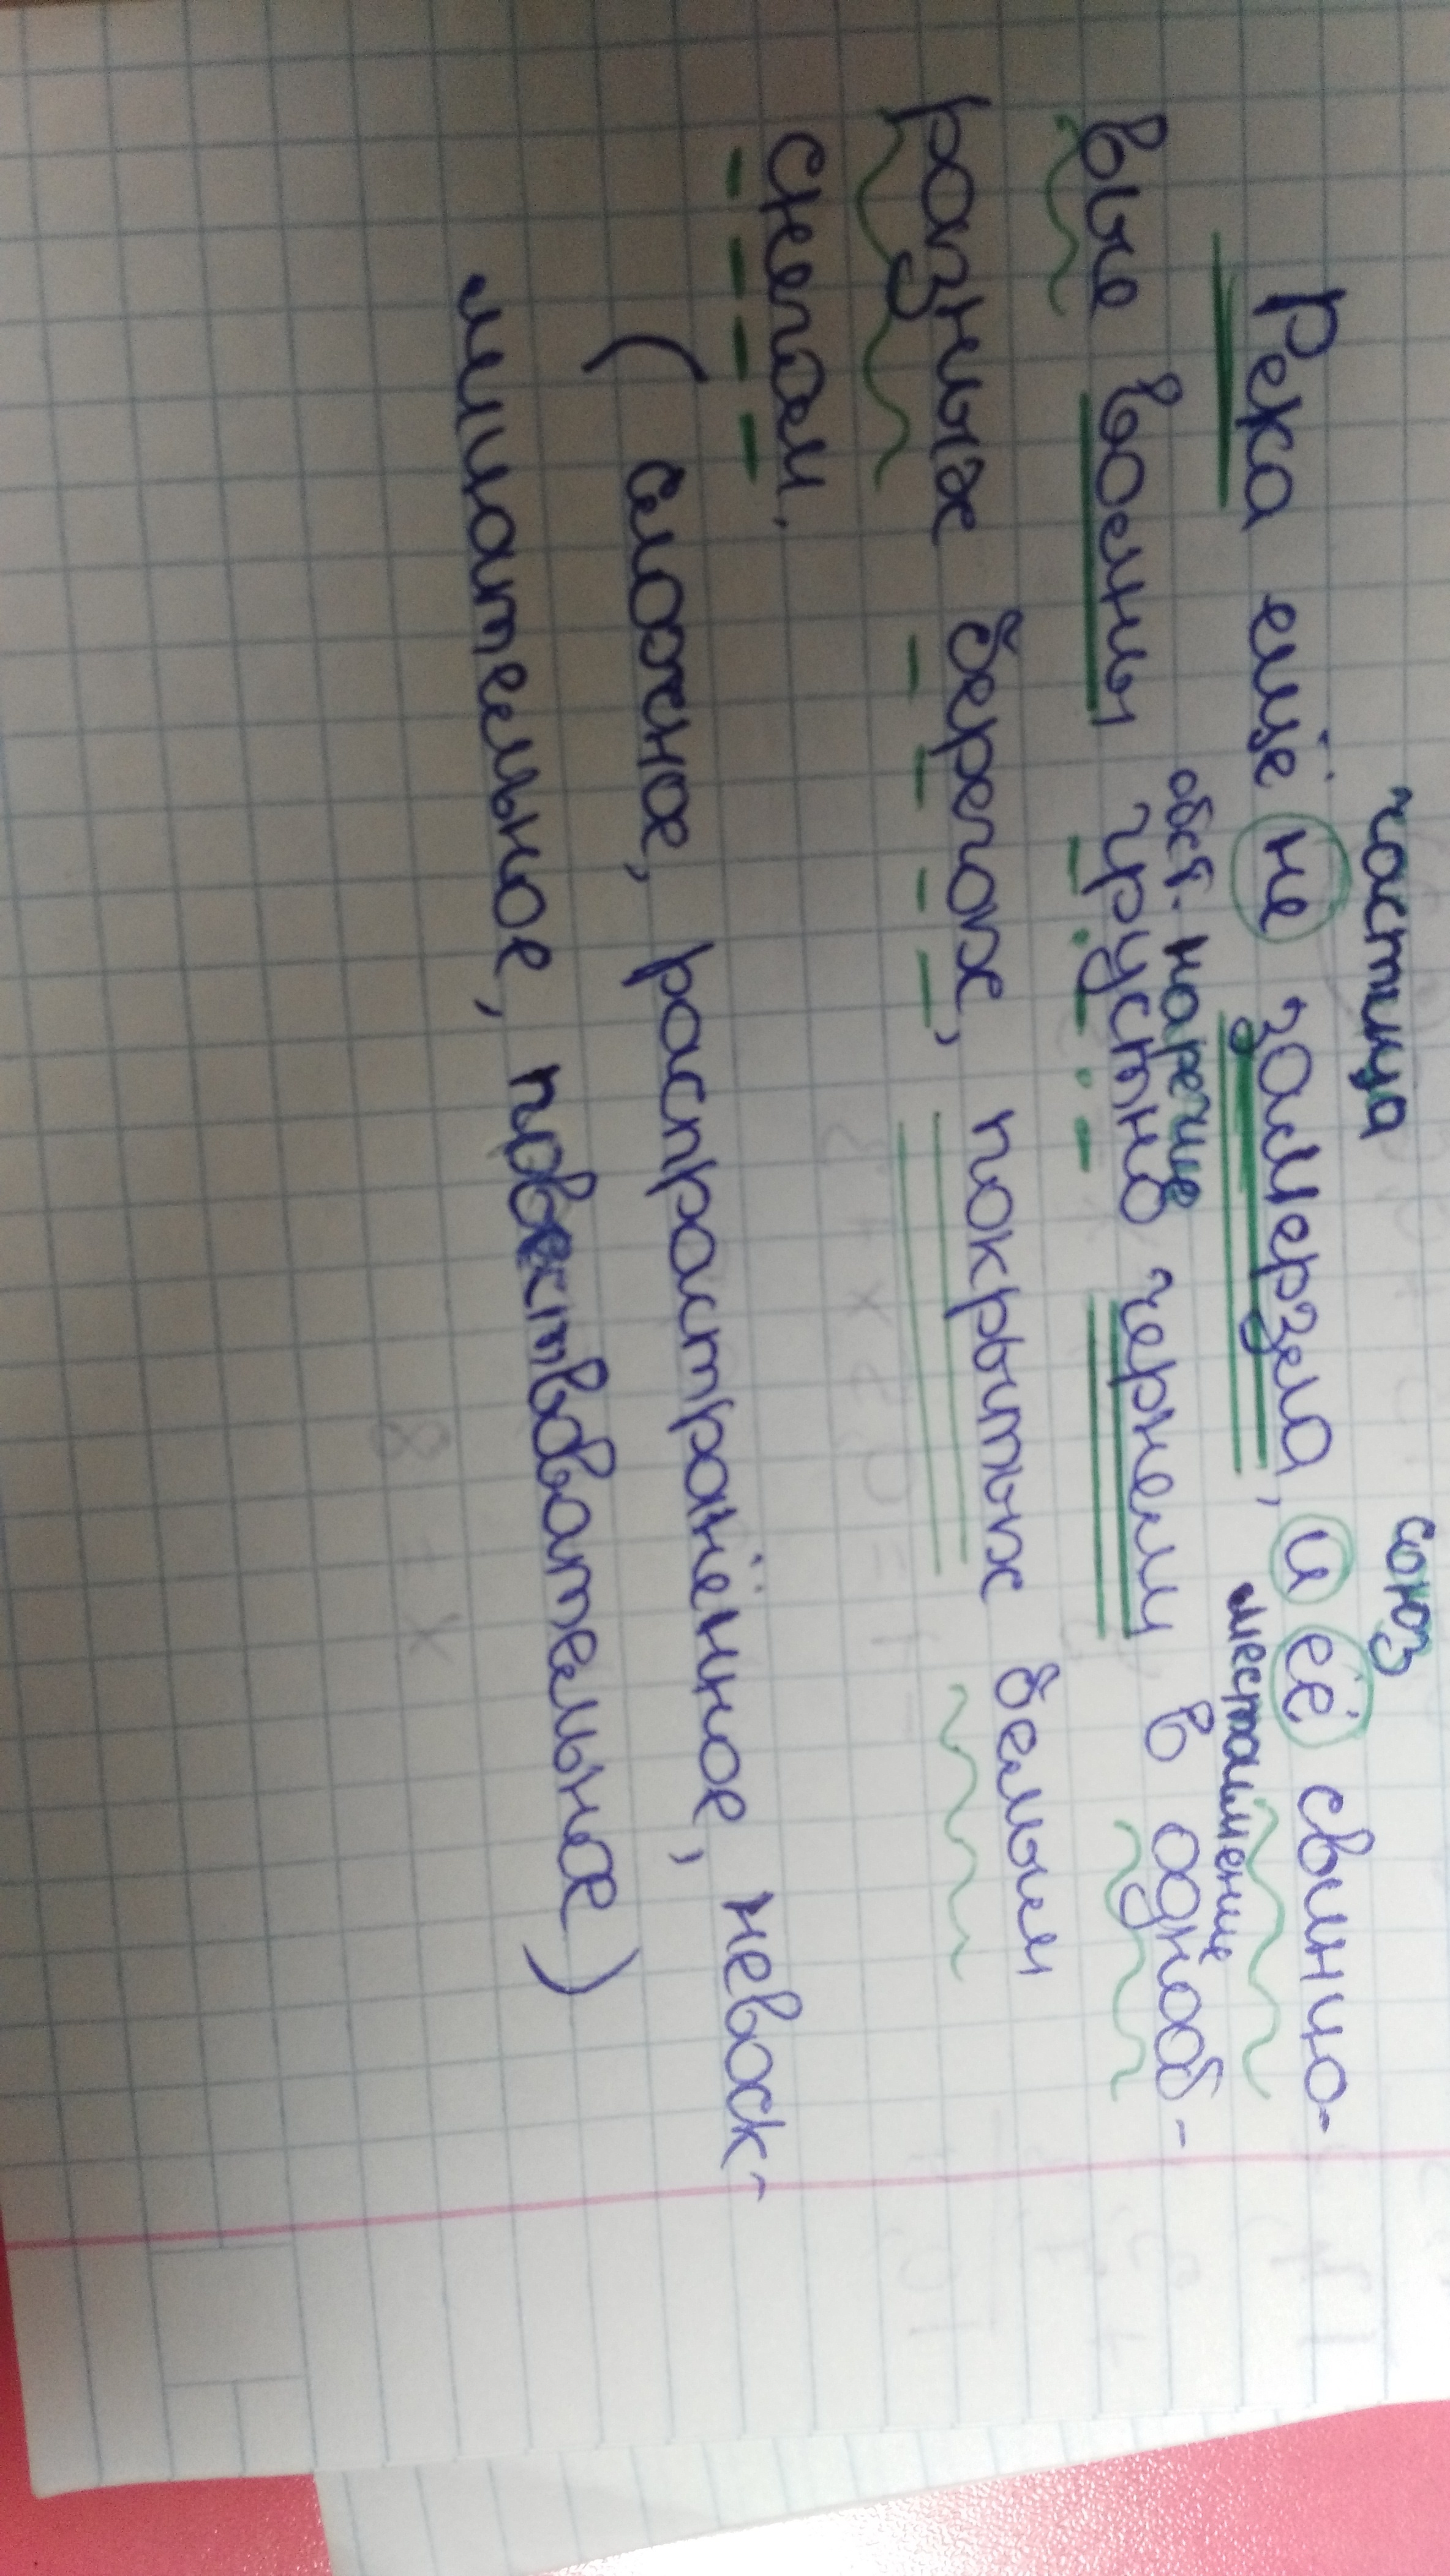 частица союз
Река ещё не замерзла, и её свинцо-
местоимение
обст. наречие
вые волны грустно чернели в однооб-
разных берегах, покрытых белым
снегом.
(сложное, распрастранённое, невоск-
лицательное, повествовательное)